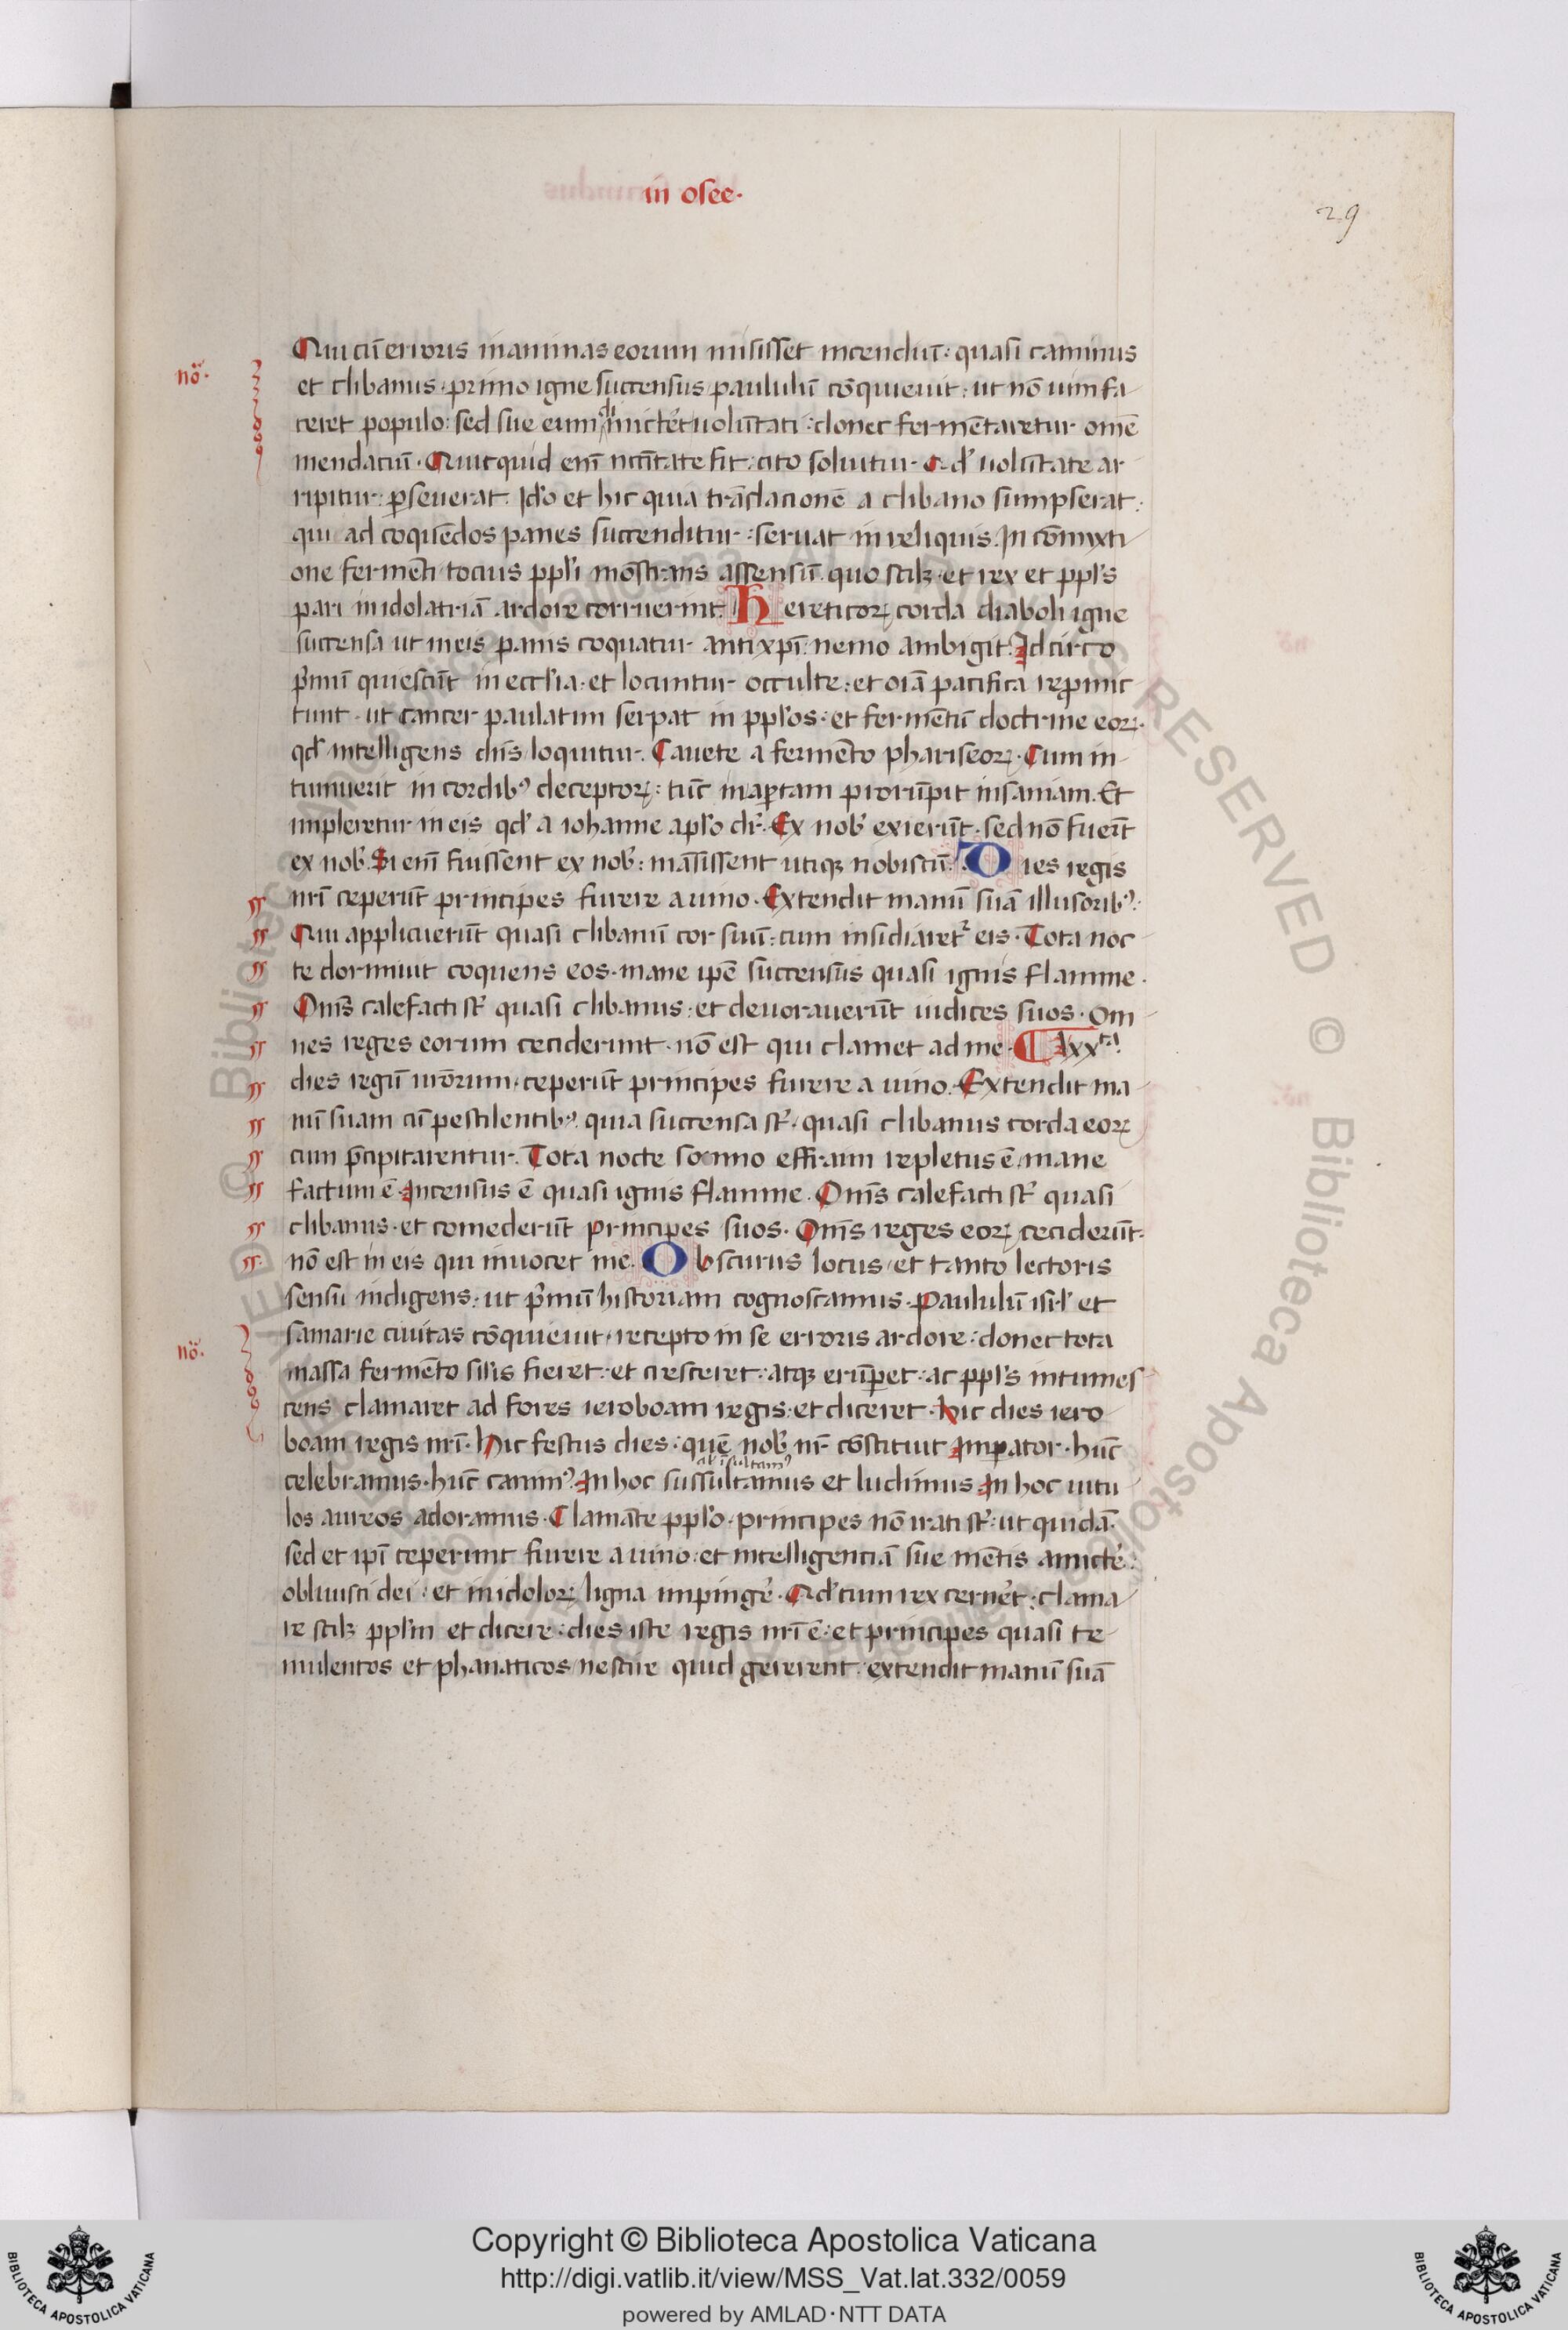 in osee.
29
Qui cū erroris in animas eorum misisset incendiū: quasi caminus
nō.
et clibanus. primo igne succensus paululū cōquieuit. ut nō uim fa
ceret populo: sed sue eum mictēt uolūtati: donec fermētaretur omē
mendaciū. Quicquid enī ncc̄itate fit: cito soluitur. Qd' uolūtate ar
ripitur: p̱seuerat. Id'o et hic quia trāslationē a clibano sumpserat:
qui ad coquēdos panes succenditur: seruat in reliquis. In cōmixti
one fermēti tocius ppl'i mōstrans assensū. quo scilꝫ et rex et ppl's
pari in idolatriā ardore corruerint. Hereticoꝝ corda diaboli igne
succensa ut in eis panis coquatur antixp̄i: nemo ambigit. Idcirco
p̄mū quiescūt in eccl'ia. et locuntur occulte: et oīa pacifica rep̱mic
tunt. ut cancer paulatim serpat in ppl'os: et fermētū doctrine eoꝝ.
qd' intelligens dn̄s loquitur. Cauete a fermēto phariseoꝝ. Cum in
tumuerit in cordibꝰ deceptoꝝ: tūc in ap̱tam prorūpit insaniam. Et
impleretur in eis qd' a iohanne apl'o dr̄. Ex nob' exierūt. sed nō fuerūt
ex nob'. Si enī fuissent ex nob': māsissent utiqꝫ nobiscū. Dies regis
nr̄i ceperūt principes furere a uino. Extendit manū suā illusoribꝰ.
Qui applicuerūt quasi clibanū cor suū: cum insidiaret᷑ eis. Tota noc
te dormiuit coquens eos. mane ip̄e succensus quasi ignis flamme.
Om̄s calefacti st̄ quasi clibanus: et deuorauerūt iudices suos. Om
nes reges eorum ceciderunt. nō est qui clamet ad me. lxxta.
dies regū ur̄orum. ceperūt principes furere a uino. Extendit ma
nū suam cū pestilentibꝰ. quia succensa st̄. quasi clibanus corda eoꝝ
cum p̄cipitarentur. Tota nocte somno effraim repletus ē. mane
factum ē. Incensus ē quasi ignis flamme. Om̄s calefacti st̄ quasi
clibanus. et comederūt principes suos. Om̄s reges eoꝝ ceciderūt.
nō est in eis qui inuocet me. Obscurus locus. et tanto lectoris
sensu indigens: ut p̄mū historiam cognoscamus. Paululū isr'l et
nō.
samarie ciuitas cōquieuit. recepto in se erroris ardore: donec tota
massa fermēto sil'is fieret: et cresceret: atqꝫ erūp̱et: ac ppl's intumes
cens clamaret ad fores ieroboam regis: et diceret. Hic dies iero
boam regis nr̄i. Hic festus dies: quē nob' nr̄ cōstituit Imp̱ator. hūc
al' sultamꝰ
celebramus. hūc canimꝰ. In hoc sussultamus et ludimus. In hoc uitu
los aureos adoramus. Clamāte ppl'o. principes nō irati st̄: ut quidā.
sed et ip̄i ceperunt furere a uino: et intelligentiā sue mētis amictē:
obliuisci dei: et in idoloꝝ ligna impingē. Qd' cum rex cernēt: clama
re scilꝫ ppl'm et dicere: dies iste regis nr̄i ē: et principes quasi te
mulentos et phanaticos nescire quid gererent: extendit manū suā
Copyright © Biblioteca Apostolica Vaticana
http://digi.vatlib.it/view/MSS_Vat.lat.332/0059
powered by AMLAD·NTT DATA